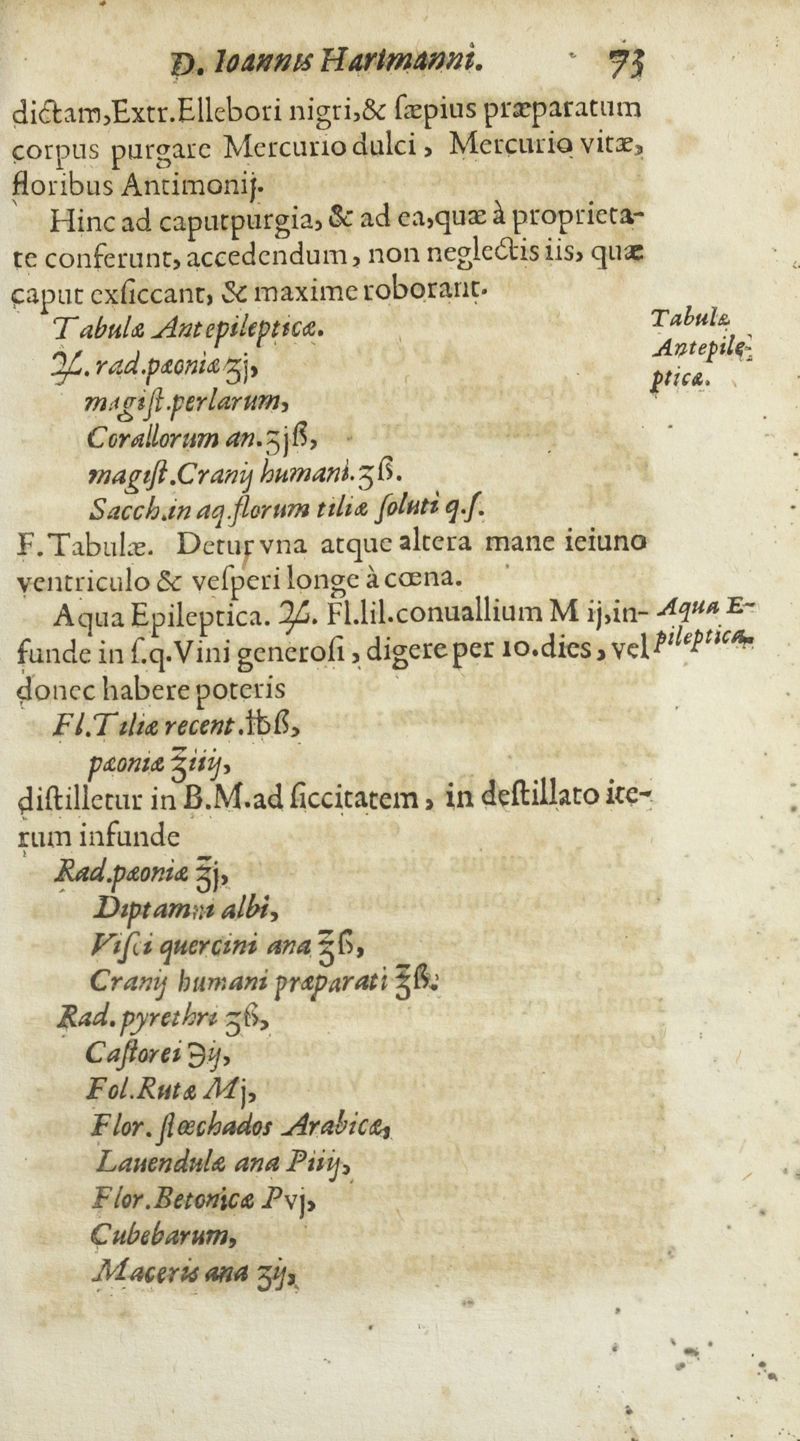 D. Ioannis Hartmanni. 73
dictam,Extr.Ellebori nigri,& sæpius præparatum
corpus purgare Mercurio dulci, Mercurio vitæ,
floribus Antimonij.
Hinc ad caputpurgia, & ad ea,quæ à proprieta-
te conferunt, accedendum, non neglectis iis, quæ
caput exsiccant, & maxime roborant.
Tabulæ Antepilepticæ.
Tabulæ
Antepile-
pticæ.
♃. rad.pæoniæ ʒj,
magist.perlarum,
Corallorum an.ʒjß,
magist.Cranij humani.ʒß.
Sacch.in aq.florum tiliæ soluti q.s.
F.Tabulæ. Detur vna atque altera mane ieiuno
ventriculo & vesperi longe à cœna.
Aqua Epileptica. ♃. Fl.lil.conuallium M ij,in-
Aqua E-
pileptica.
funde in s.q.Vini generosi, digere per 10.dies, vel
donec habere poteris
Fl.Tiliæ recent.℔ß,
pæoniæ ℥iiij,
distilletur in B.M.ad siccitatem, in destillato ite-
rum infunde
Rad.pæoniæ ℥j,
Diptamni albi,
Visci quercini ana ℥ß,
Cranij humani præparati ℥ß.
Rad. pyrethri ʒß,
Castorei ℈ij,
Fol.Rutæ Mj,
Flor. stœchados Arabicæ,
Lauendulæ ana Piiij,
Flor.Betonicæ Pvj,
Cubebarum,
Maceris ana ʒij,